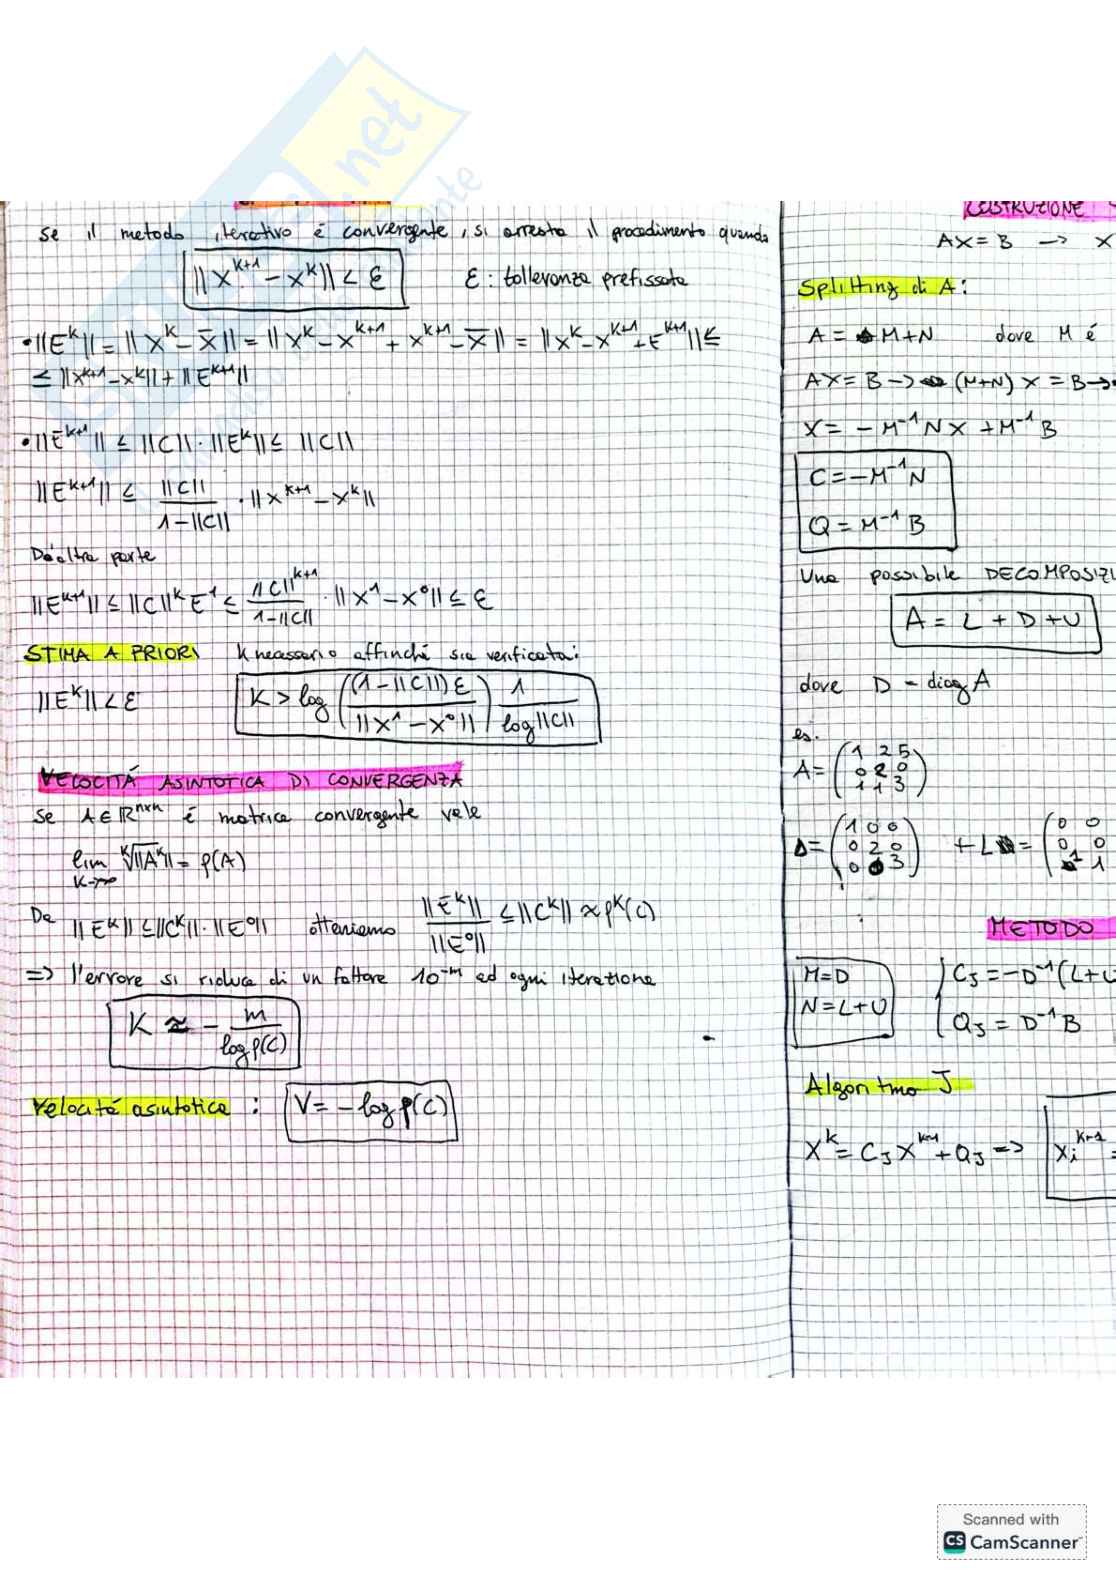 Se il metodo iterativo é convergente, si arresta il procedimento quando
||X^{K+1} - X^K|| < ε    ε: tolleranza prefissata
• ||E^K|| = ||X^K - X̄|| = ||X^K - X^{K+1} + X^{K+1} - X̄|| = ||X^K - X^{K+1} + E^{K+1}|| ≤
≤ ||X^{K+1} - X^K|| + ||E^{K+1}||
• ||E^{K+1}|| ≤ ||C|| · ||E^K|| ≤ ||C||
||E^{K+1}|| ≤ ||C|| / (1 - ||C||) · ||X^{K+1} - X^K||
D'altra parte
||E^{K+1}|| ≤ ||C||^K E^1 ≤ ||C||^{K+1} / (1 - ||C||) · ||X^1 - X^0|| ≤ ε
STIMA A PRIORI    K necessario affinché sia verificata:
||E^K|| < ε    K > log ((1 - ||C||) ε / ||X^1 - X^0||) 1 / log||C||
VELOCITÁ ASINTOTICA DI CONVERGENZA
Se A ∈ ℝ^{n×n} é matrice convergente vale
lim_{K→∞} ᴷ√||A^K|| = ρ(A)
Da ||E^K|| ≤ ||C^K|| · ||E^0||    otteniamo    ||E^K|| / ||E^0|| ≤ ||C^K|| ≈ ρ^K(C)
=> l'errore si riduce di un fattore 10^{-m} ad ogni iterazione
K ≈ - m / log ρ(C)
Velocità asintotica : V = - log ρ(C)
COSTRUZIONE
AX = B → X
Splitting di A:
A = M+N    dove M é
AX = B → (M+N) X = B →
X = - M^{-1} N X + M^{-1} B
C = - M^{-1} N
Q = M^{-1} B
Una possibile DECOMPOSIZI
A = L + D + U
dove D = diag A
es.
A = (1 2 5
0 2 0
1 1 3)
D = (1 0 0    + L = (0 0
0 2 0    0 0
0 0 3)    1 1
METODO
M = D    C_J = - D^{-1} (L+U
N = L+U    Q_J = D^{-1} B
Algoritmo J
X^K = C_J X^{K-1} + Q_J => X_i^{K+1} =
Scanned with
CS CamScanner